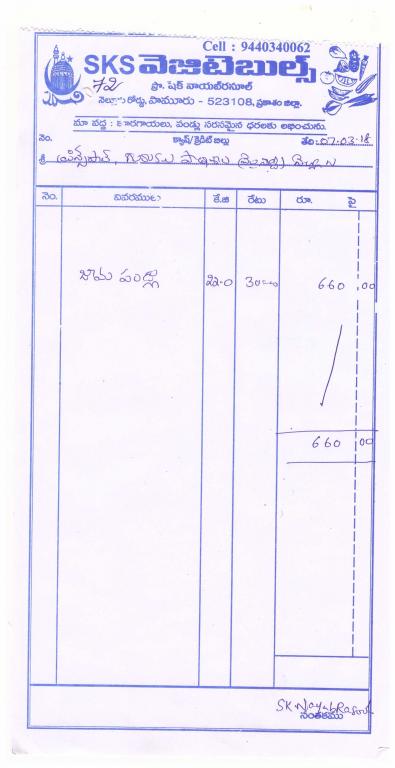 Cell : 9440340062
SKS వెజిటెబుల్స్
72
ప్రొ. షేక్ నాయబ్‌రసూల్
నెల్లూరు రోడ్డు, పామూరు - 523108, ప్రకాశం జిల్లా.
మా వద్ద : కూరగాయలు, పండ్లు సరసమైన ధరలకు లభించును.
నెం. క్యాష్/క్రెడిట్ బిల్లు తేది: 07-03-18
శ్రీ ప్రిన్సిపాల్, గురుకుల పాఠశాల
నెం. వివరములు కే.జి రేటు రూ. పై
జామ పండ్లు 22-0 30=00 660 .00
660 00
SK Nayab Rasool
సంతకము